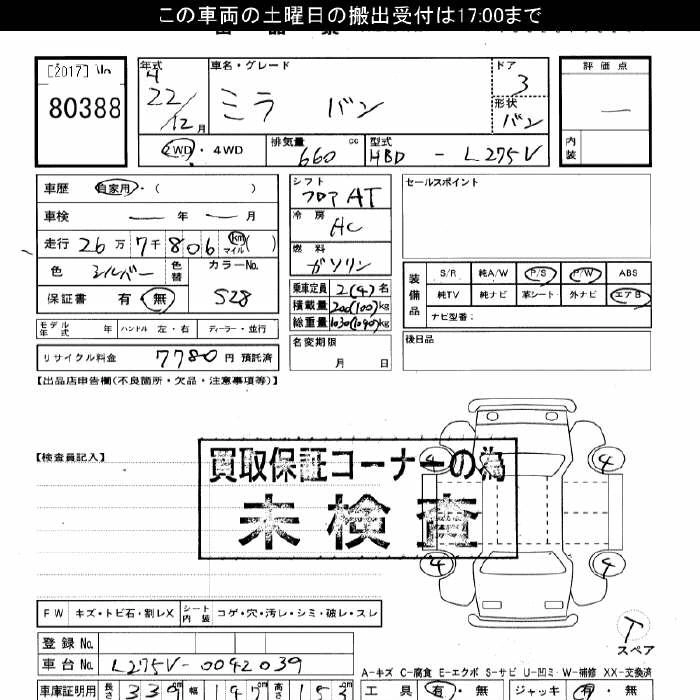 この車両の土曜日の搬出受付は17:00まで
[2017] No
80388
年式 車名・グレード ドア 評価点
22/12月 ミラ バン 3
形状
バン
—
2WD・4WD 排気量 660 cc 型式 HBD - L275V 内装
車歴 自家用・( )
車検 — 年 — 月
走行 26万7千806 km マイル ( )
色 シルバー 色替 カラーNo. S28
保証書 有・無
シフト フロア AT
冷房 AC
燃料 ガソリン
乗車定員 2(4)名
積載量 200(100)kg
総重量 1030(1090)kg
セールスポイント
装備品 S/R 純A/W P/S P/W ABS
純TV 純ナビ 革シート 外ナビ エアB
ナビ型番:
モデル年式 年 ハンドル 左・右 ディーラー・並行
名変期限 月 日
後日品
リサイクル料金 7780 円 預託済
【出品店申告欄(不良箇所・欠品・注意事項等)】
【検査員記入】
買取保証コーナーの為
未検査
4 4
4 4
FW キズ・トビ石・割レX シート内装 コゲ・穴・汚レ・シミ・破レ・スレ
T
スペア
登録 No.
車台 No. L275V-0042039
A-キズ C-腐食 E-エクボ S-サビ U-凹ミ W-補修 XX-交換済
車庫証明用 長さ 339cm 幅 147cm 高さ 153cm 工具 有・無 ジャッキ 有・無